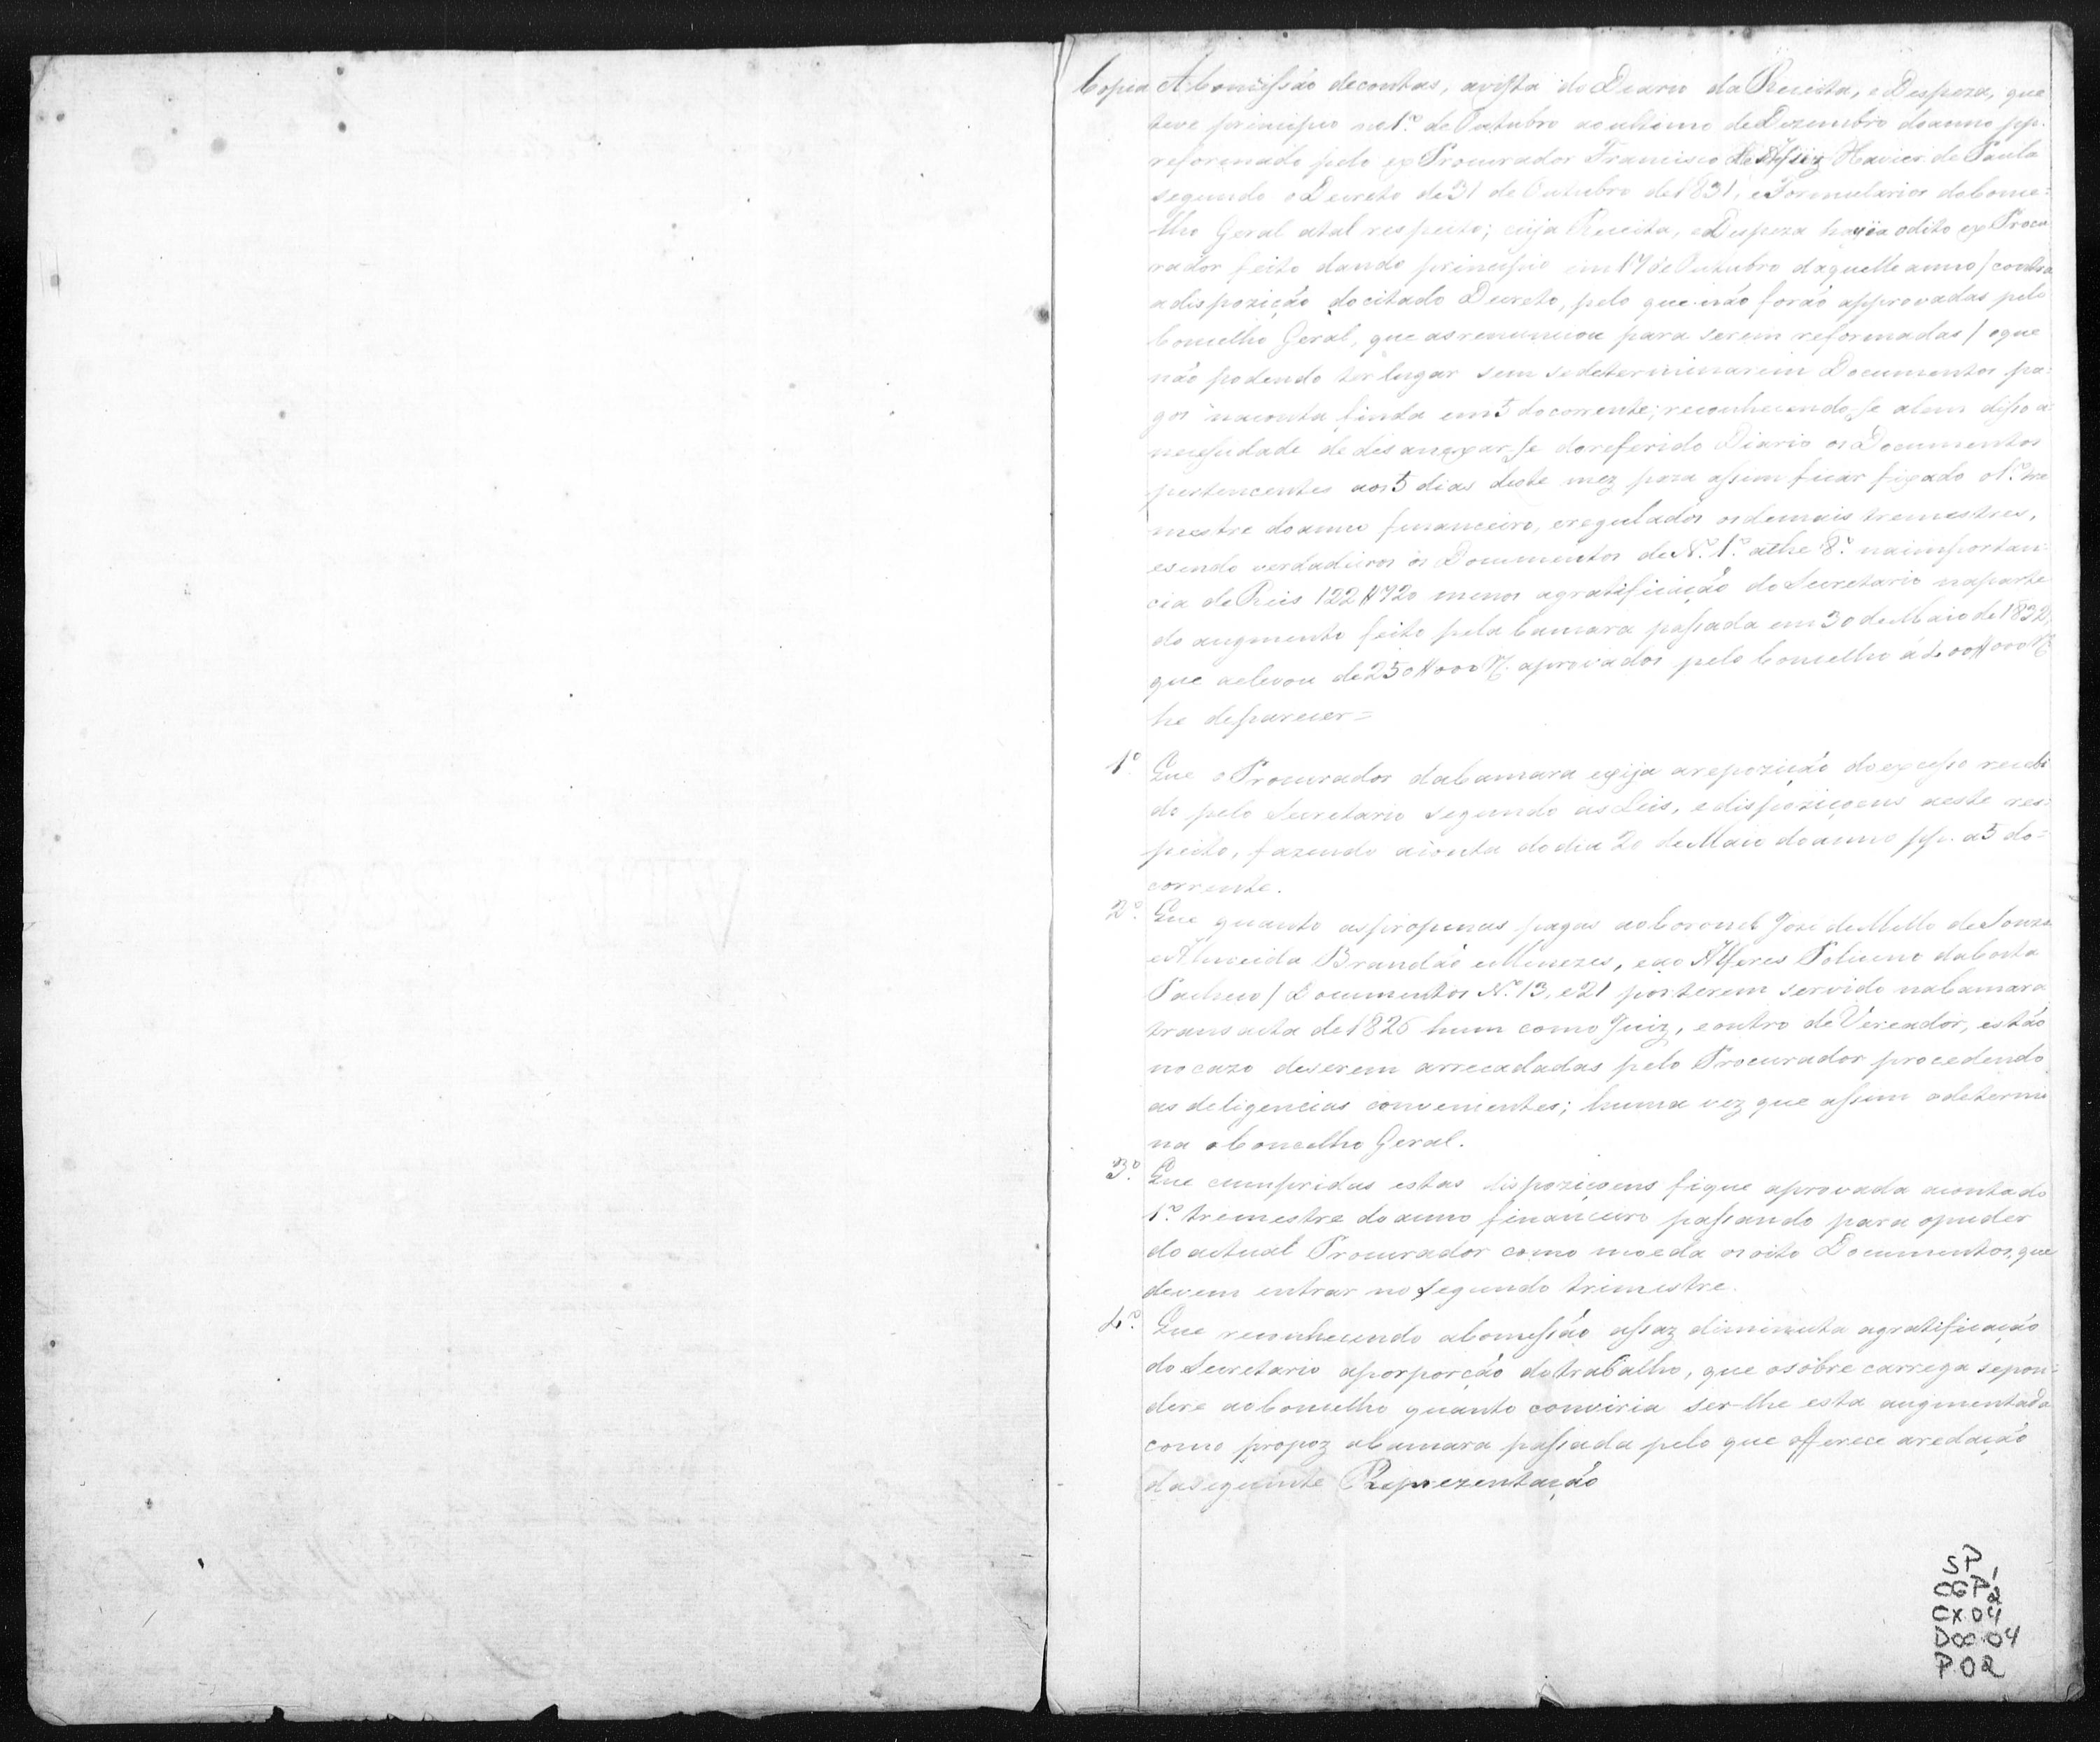 Copia A Comissáo decontas, avista do Diario da Receita, e Despeza, que
teve principio no 1º de Outubro ao ultimo de Dezembro doanno pp.
reformado pelo ex Procurador Francisco de Assiz Xavier de Paula
segundo o Decreto de 31 de Outubro de 1831, e Formularios do Conse=
lho Geral atal respeito; cuja Receita, e Despeza havia odito ex Procu
rador feito dando principio em 17 de Outubro daquelle anno / contra
adispozição docitado Decreto, pelo que não forão approvadas pelo
Concelho Geral, que as para serem reformadas / oque
não podendo ter lugar sem sedeterminarem Documentos pa=
gos naconta finda em 5 do corrente; reconhecendo-se alem disso a=
necessidade de desanexar-se doreferido Diario os Documentos
pertencentes aos 5 dias deste mez para assim ficar fixado o 1º tre
mestre doanno financeiro, eregulados osdemais tremestres,
esendo verdadeiros os Documentos de Nº 1º athe 8º naimportan=
cia de Reis 122#720 menos agratificação do Secretario naparte
do augmento feito pela Camara passada em 30 de Maio de 1832,
que aelevou de 250#000 rs. aprovados pelo Concelho á 400#000 rs
he deparecer=
1º Que o Procurador daCamara exija arepozição do excesso recebi
do pelo Secretario segundo as Leis, e dispoziçoens aeste res=
peito, fazendo aconta do dia 20 de Maio doanno pp. a 5 do=
corrente.
2º Que quanto aspropinas pagas aoCoronel José de Mello de Souza
e Almeida Brandão e Menezes, e ao Alferes Policeno daCosta
Pacheco / Documentos Nº 13, e 21 por terem servido naCamara
transacta de 1826 hum como Juiz, e outro de Vereador, estão
no cazo de serem arrecadadas pelo Procurador procedendo
as deligencias convenientes; huma vez que assim odetermi
na oConcelho Geral.
3º Que cumpridas estas dispoziçoens fique aprovada acontado
1º tremestre do anno financeiro passando para opuder
doactual Procurador como moeda os oito Documentos, que
devem entrar no segundo trimestre.
4º Que reconhecendo aComessão assaz diminuta agratificação
do Secretario aporporção dotrabalho, que osobre carrega sepon=
dere aoConcelho quanto conviria ser-lhe esta augmentada
como propoz aCamara passada pelo que offerece aredação
daseguinte Reprezentação
SP 1
CGP 2
CX 04
Doc 04
P. 02